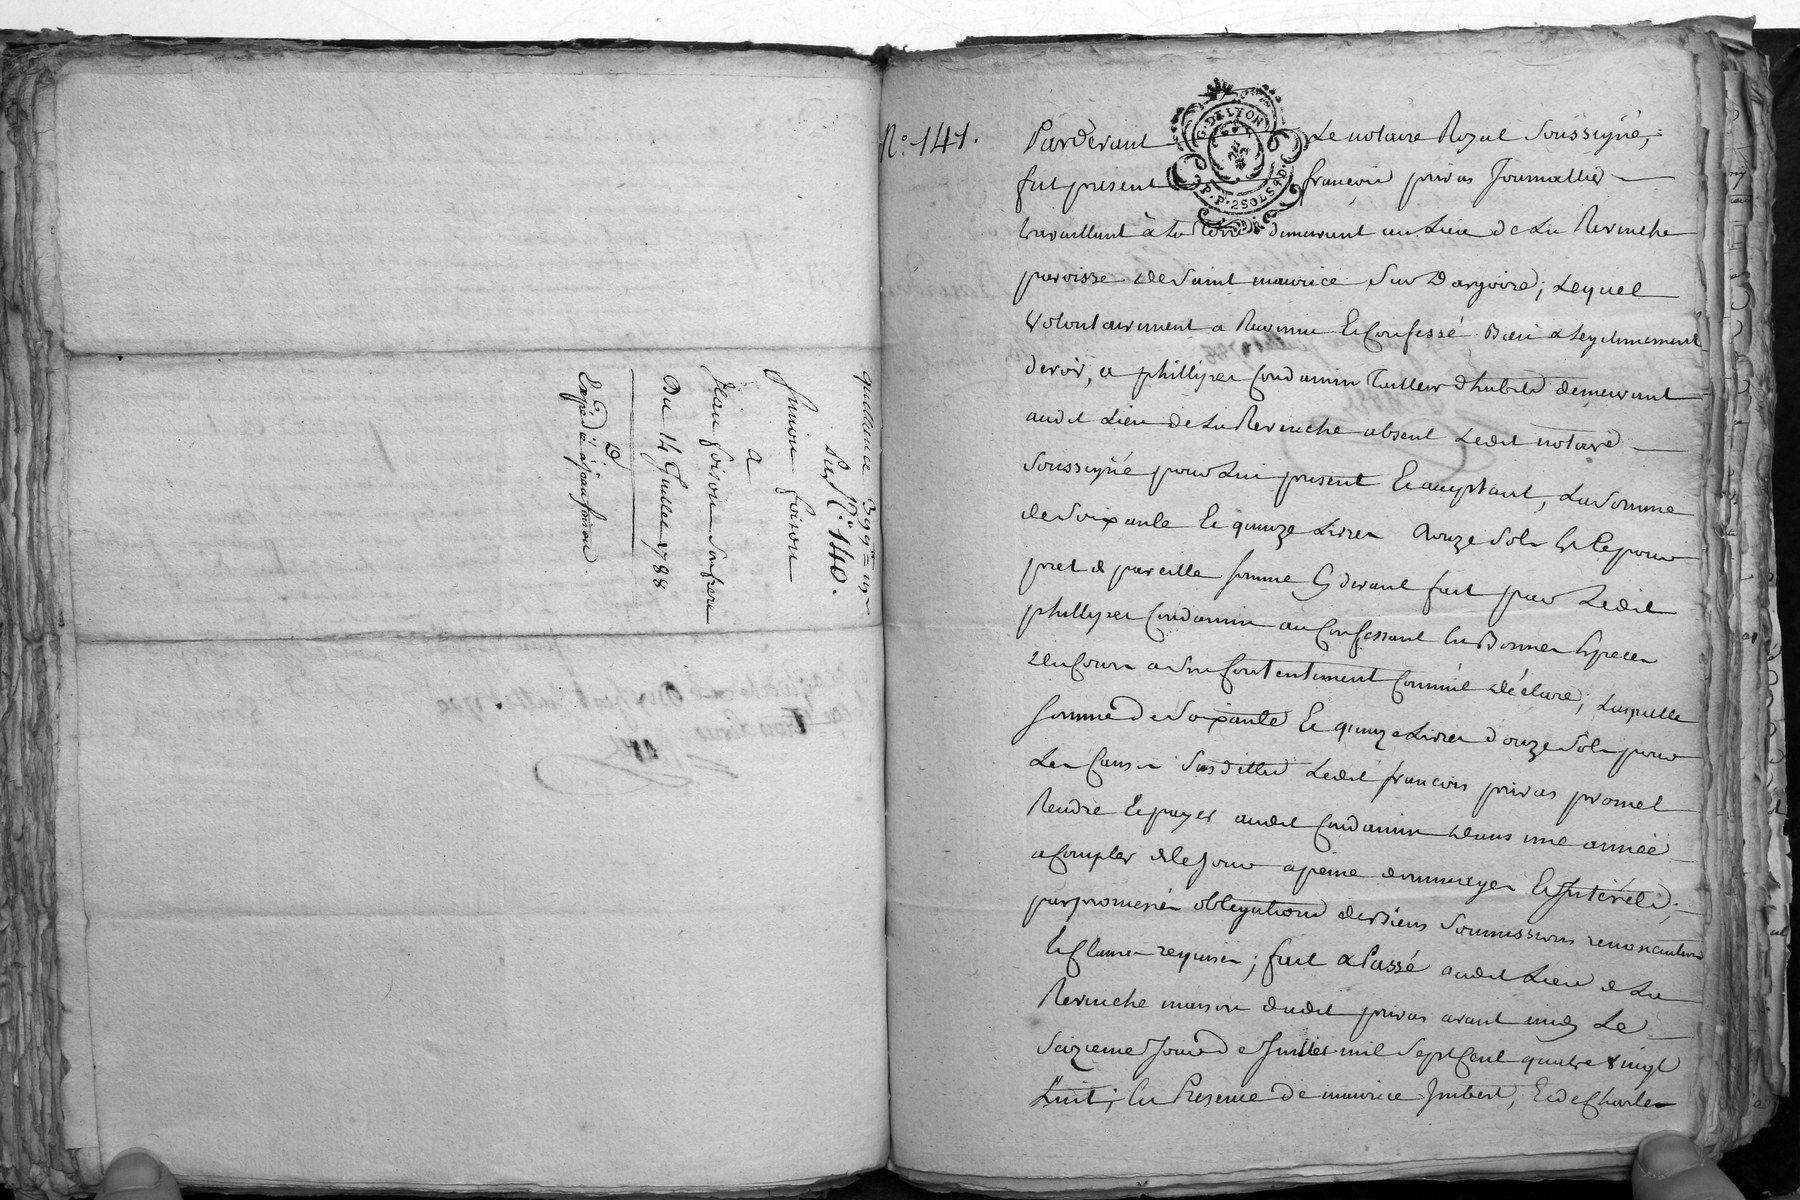 quittance 399# 19s
Du N° 140.
foison
a
Jean foison son frere
Du 14 Juillet 1788
Expédié à Jean foison.
N°. 141.
G. DE LYON
P. P. 2 SOLS 4 D.
Pardevant Le notaire Royal Soussigné,
fut present françois privas Journallier
travaillant à la terre demeurant au Lieu de La Revinche
paroisse de Saint maurice Sur Dargoire; Lequel
volontairement a Reconnu & Confessé Bien & legitimement
devoir, a phillipes Condamin Tailleur dhabits demeurant
audit Lieu de La Revinche absent Ledit notaire
Soussigné pour Lui present & acceptant, La Somme
de Soixante & quinze Livres Douze Sols & ce pour
pret de pareille somme Cy devant fait par Ledit
phillipes Condamin au Confessant En Bonnes Especes
du Cours a Son Contentement Comme il déclare; Laquelle
somme de Soixante & quinze Livres douze Sols pour
Les Causes Susdittes Ledit francois privas promet
Rendre & payer audit Condamin dans une année
a Compter de ce Jour a peine dommages & Intérêts;
par promesses obligations de Biens Soumissions renonciations
& Clauses requises; fait & Passé audit Lieu de La
Revinche maison dudit privas avant midy Le
Seizieme Jour de Juillet mil Sept Cent quatre vingt
huit; En Presence de maurice Imbert, & de Charles